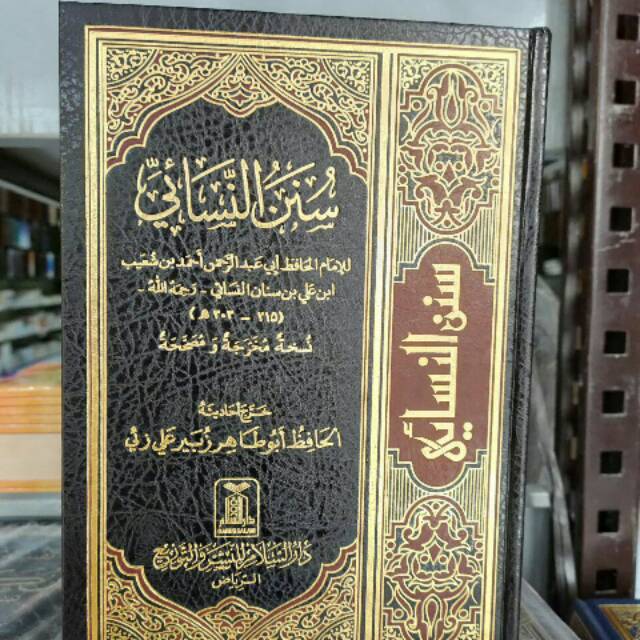 سُنَنُ النَّسَائِيِّ
للإمام الحافظ أبي عبد الرحمن أحمد بن شعيب
ابن علي بن سنان النسائي - رحمه الله -
(٢١٥ - ٣٠٣ هـ)
نسخة مخرجة و مصححة
خرج أحاديثه
الحافظ أبو طاهر زبير علي زئي
دار السلام
DARUSSALAM
دار السلام للنشر والتوزيع
الرياض
سنن النسائي